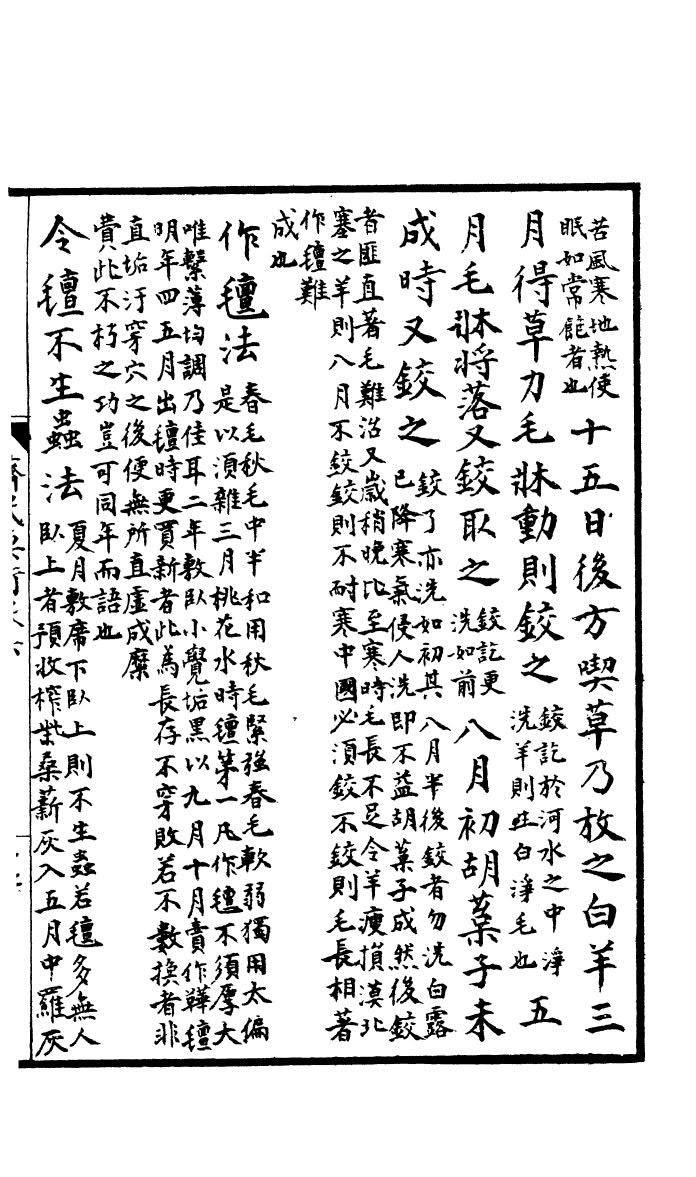 苦風寒地熱使
眠如常飽者也
十五日後方喫草乃放之白羊三
月得草力毛牀動則鉸之
鉸訖於河水之中淨
洗羊則生白淨毛也
五
月毛牀將落又鉸取之
鉸訖更
洗如前
八月初胡葈子未
成時又鉸之
鉸了亦洗如初其八月半後鉸者勿洗白露
已降寒氣侵人洗即不益胡葈子成然後鉸
者匪直著毛難治又歲稍晚比至寒時毛長不足令羊瘦損漠北
塞之羊則八月不鉸鉸則不耐寒中國必須鉸不鉸則毛長相著
作氊難
成也
作氊法
春毛秋毛中半和用秋毛緊強春毛軟弱獨用太偏
是以須雜三月桃花水時氊第一凡作氊不須厚大
唯繫薄均調乃佳耳二年敷臥小覺垢黑以九月十月賣作鞾氊
明年四五月出氊時更買新者此為長存不穿敗若不數換者非
直垢汙穿穴之後便無所直虛成糜
費此不朽之功豈可同年而語也
令氊不生蟲法
夏月敷席下臥上則不生蟲若氊多無人
臥上者預收柞柴桑薪灰入五月中羅灰